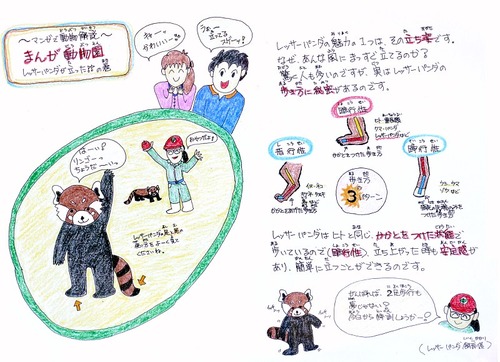 〜マンガで動物解説〜
まんが動物園
レッサーパンダが立った!?の巻
キャー
かわいいー
うわぁー
立ってる
スゲーッ!
はーい?
リンゴー
ちょうだーい。
おやつだよ!
レッサーパンダの
レッサーパンダの魅力の1つは、その立ち姿です。
なぜ、あんな風にまっすぐ立てるのか?
驚く人も多いのですが、実はレッサーパンダの
歩き方に秘密があるのです。
蹠行性
ヒト
クマ・パンダ
レッサーパンダなど
かかとをつけた歩き方
趾行性
イヌ・ネコ
かかとをあげた歩き方
歩き方
3パターン
蹄行性
ウシ・ウマ
ゾウなど
レッサーパンダはヒトと同じ、かかとをつけた状態で
歩いているので(蹠行性)、立ち上がった時も安定感が
あり、簡単に立つことができるのです。
がんばれば、2足歩行も
夢じゃない?
今日から特訓しようかー?
(レッサーパンダ飼育係)